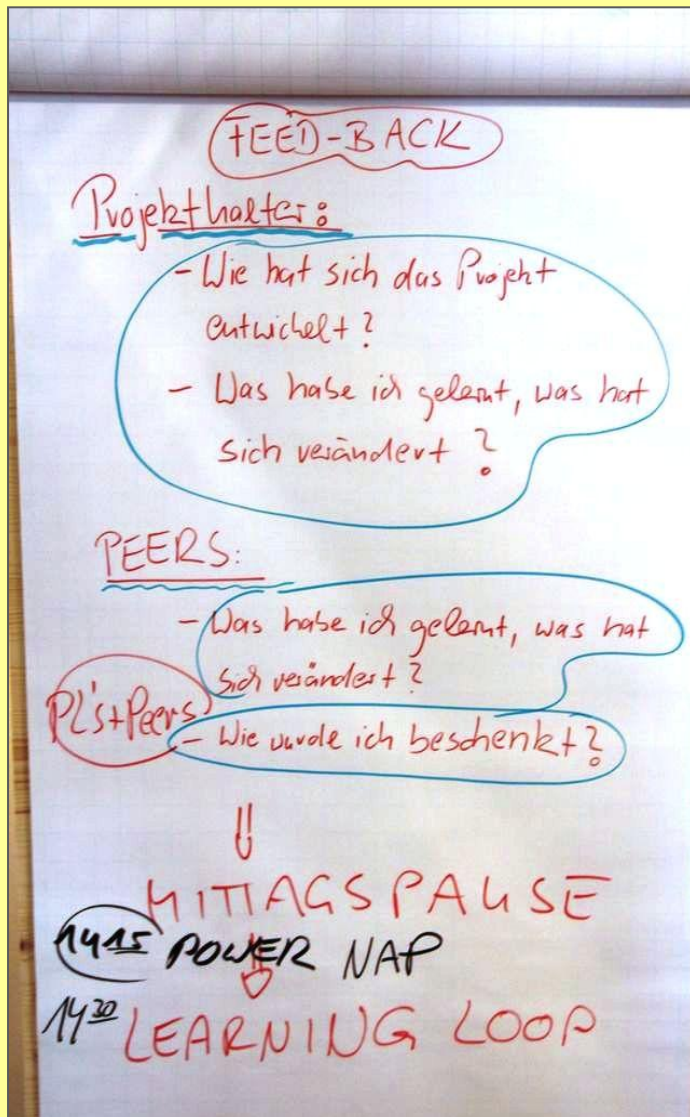 FEED-BACK
Projekthalter:
- Wie hat sich das Projekt
entwickelt?
- Was habe ich gelernt, was hat
sich verändert?
PEERS:
- Was habe ich gelernt, was hat
sich verändert?
PL's+Peers
- Wie wurde ich beschenkt?
MITTAGSPAUSE
14 15 POWER NAP
14 30 LEARNING LOOP